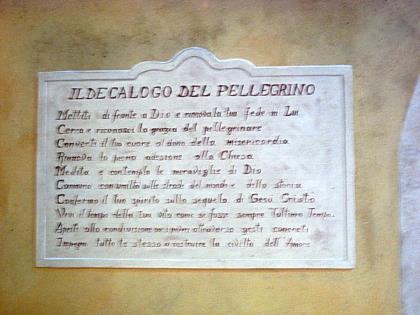 IL DECALOGO DEL PELLEGRINO
Mettiti di fronte a Dio e rinnova la tua fede in Lui
Cerca e riconosci la grazia del pellegrinare
Converti il tuo cuore al dono della misericordia
Rinnova la piena adesione alla Chiesa
Medita e contempla le meraviglie di Dio
Cammina con umiltà sulle strade del mondo e della storia
Conferma il tuo spirito sulla sequela di Gesù Cristo
Vivi il tempo della tua vita come se fosse sempre l'ultimo Tempo.
Apriti alla condivisione con i poveri attraverso gesti concreti
Impegna tutto te stesso a costruire la civiltà dell'Amore